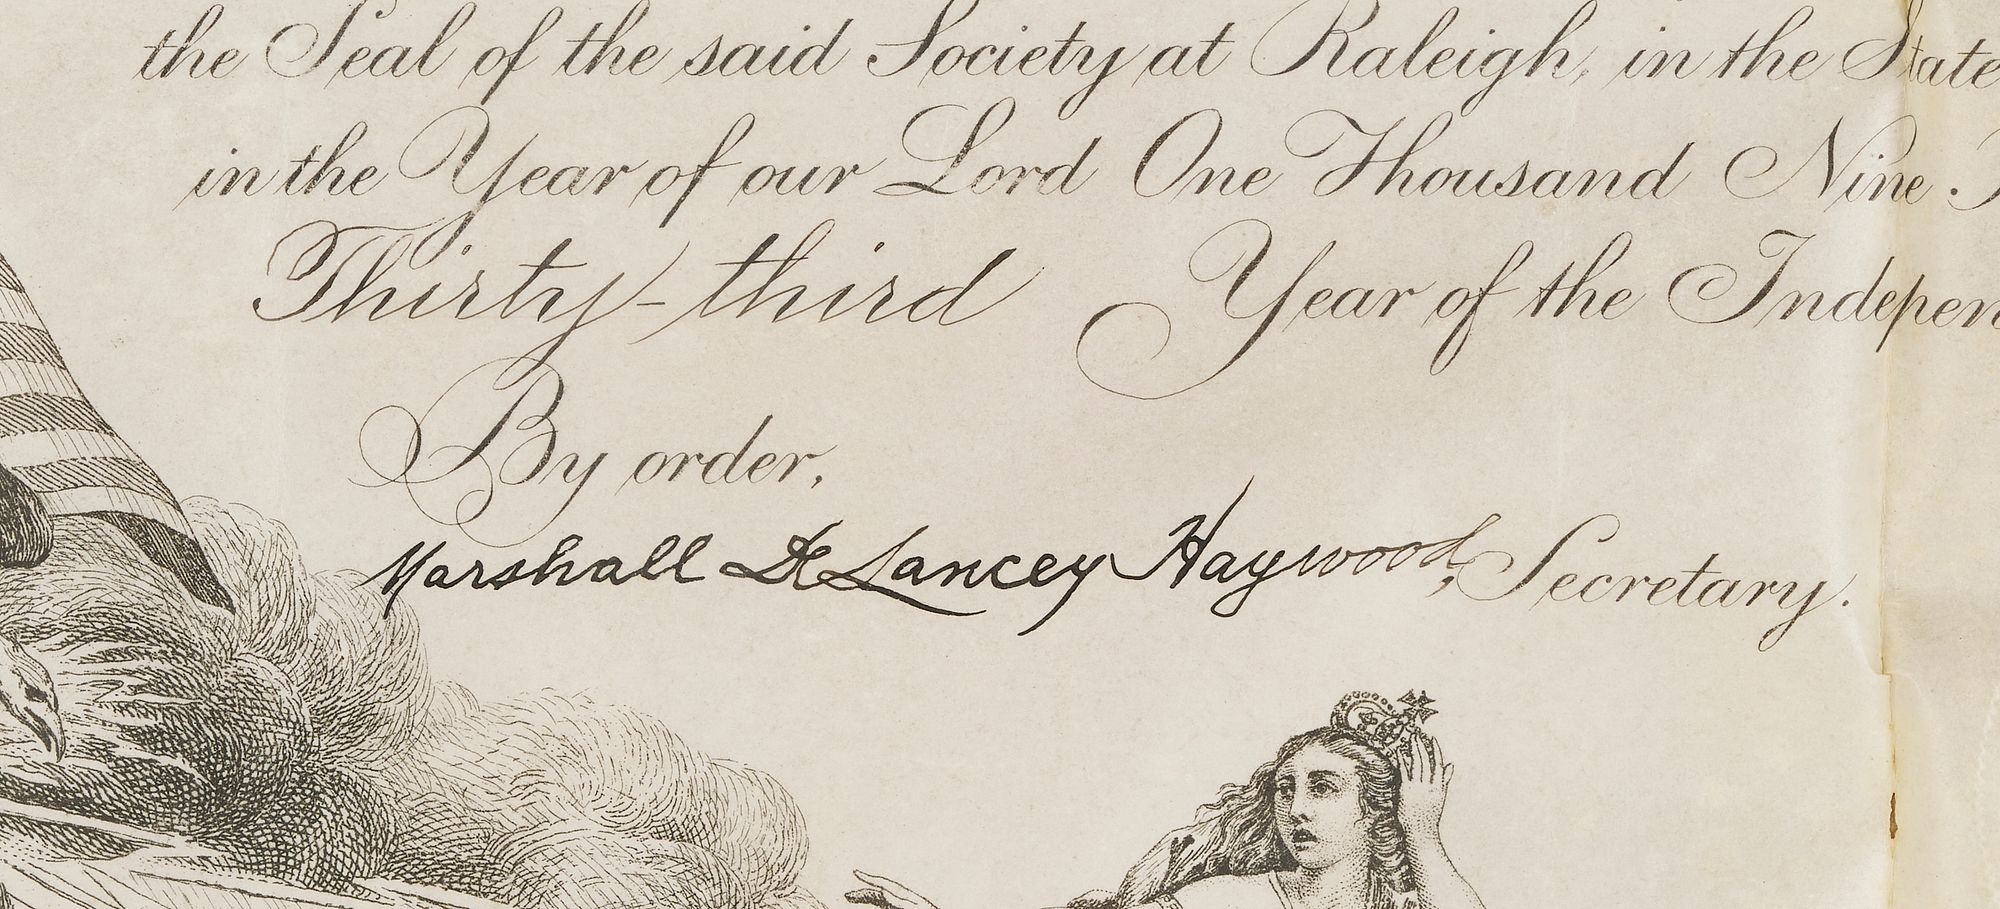 the Seal of the said Society at Raleigh, in the State
in the Year of our Lord One Thousand Nine
Thirty-third Year of the Indepen
By order,
Marshall De Lancey Haywood, Secretary.